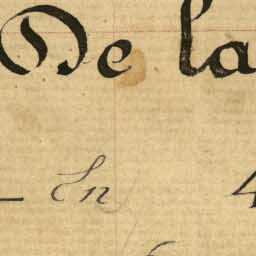 De la
- En 4